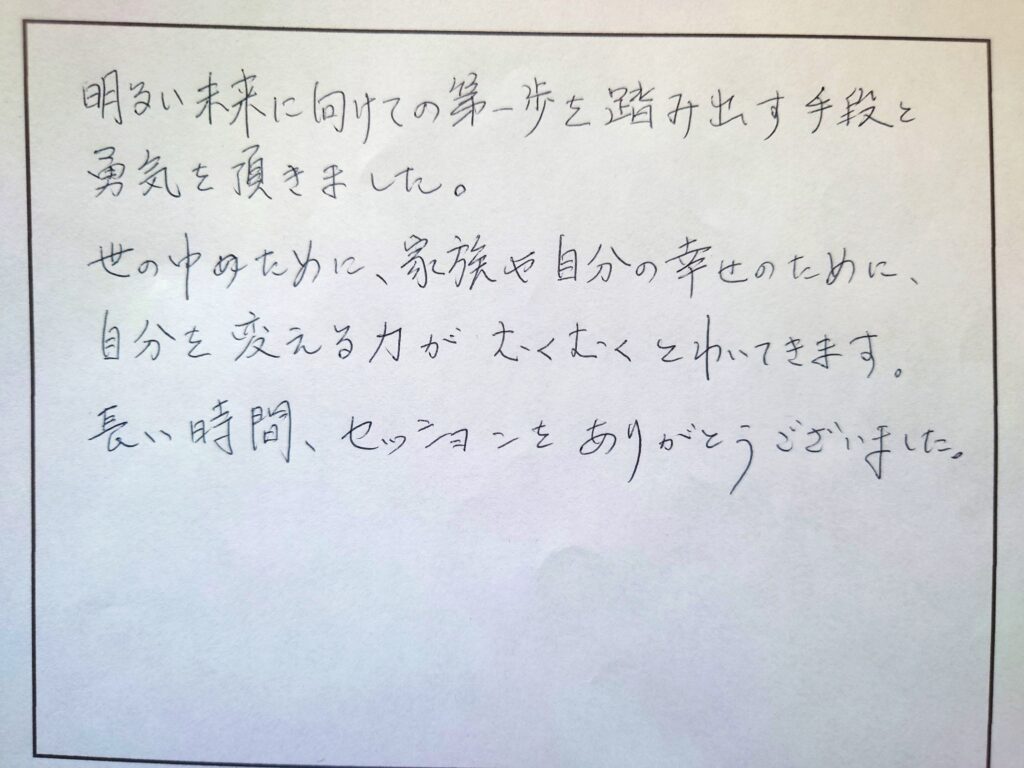 明るい未来に向けての第一歩を踏み出す手段と
勇気を頂きました。
世の中のために、家族や自分の幸せのために、
自分を変える力が むくむくとわいてきます。
長い時間、セッションをありがとうございました。